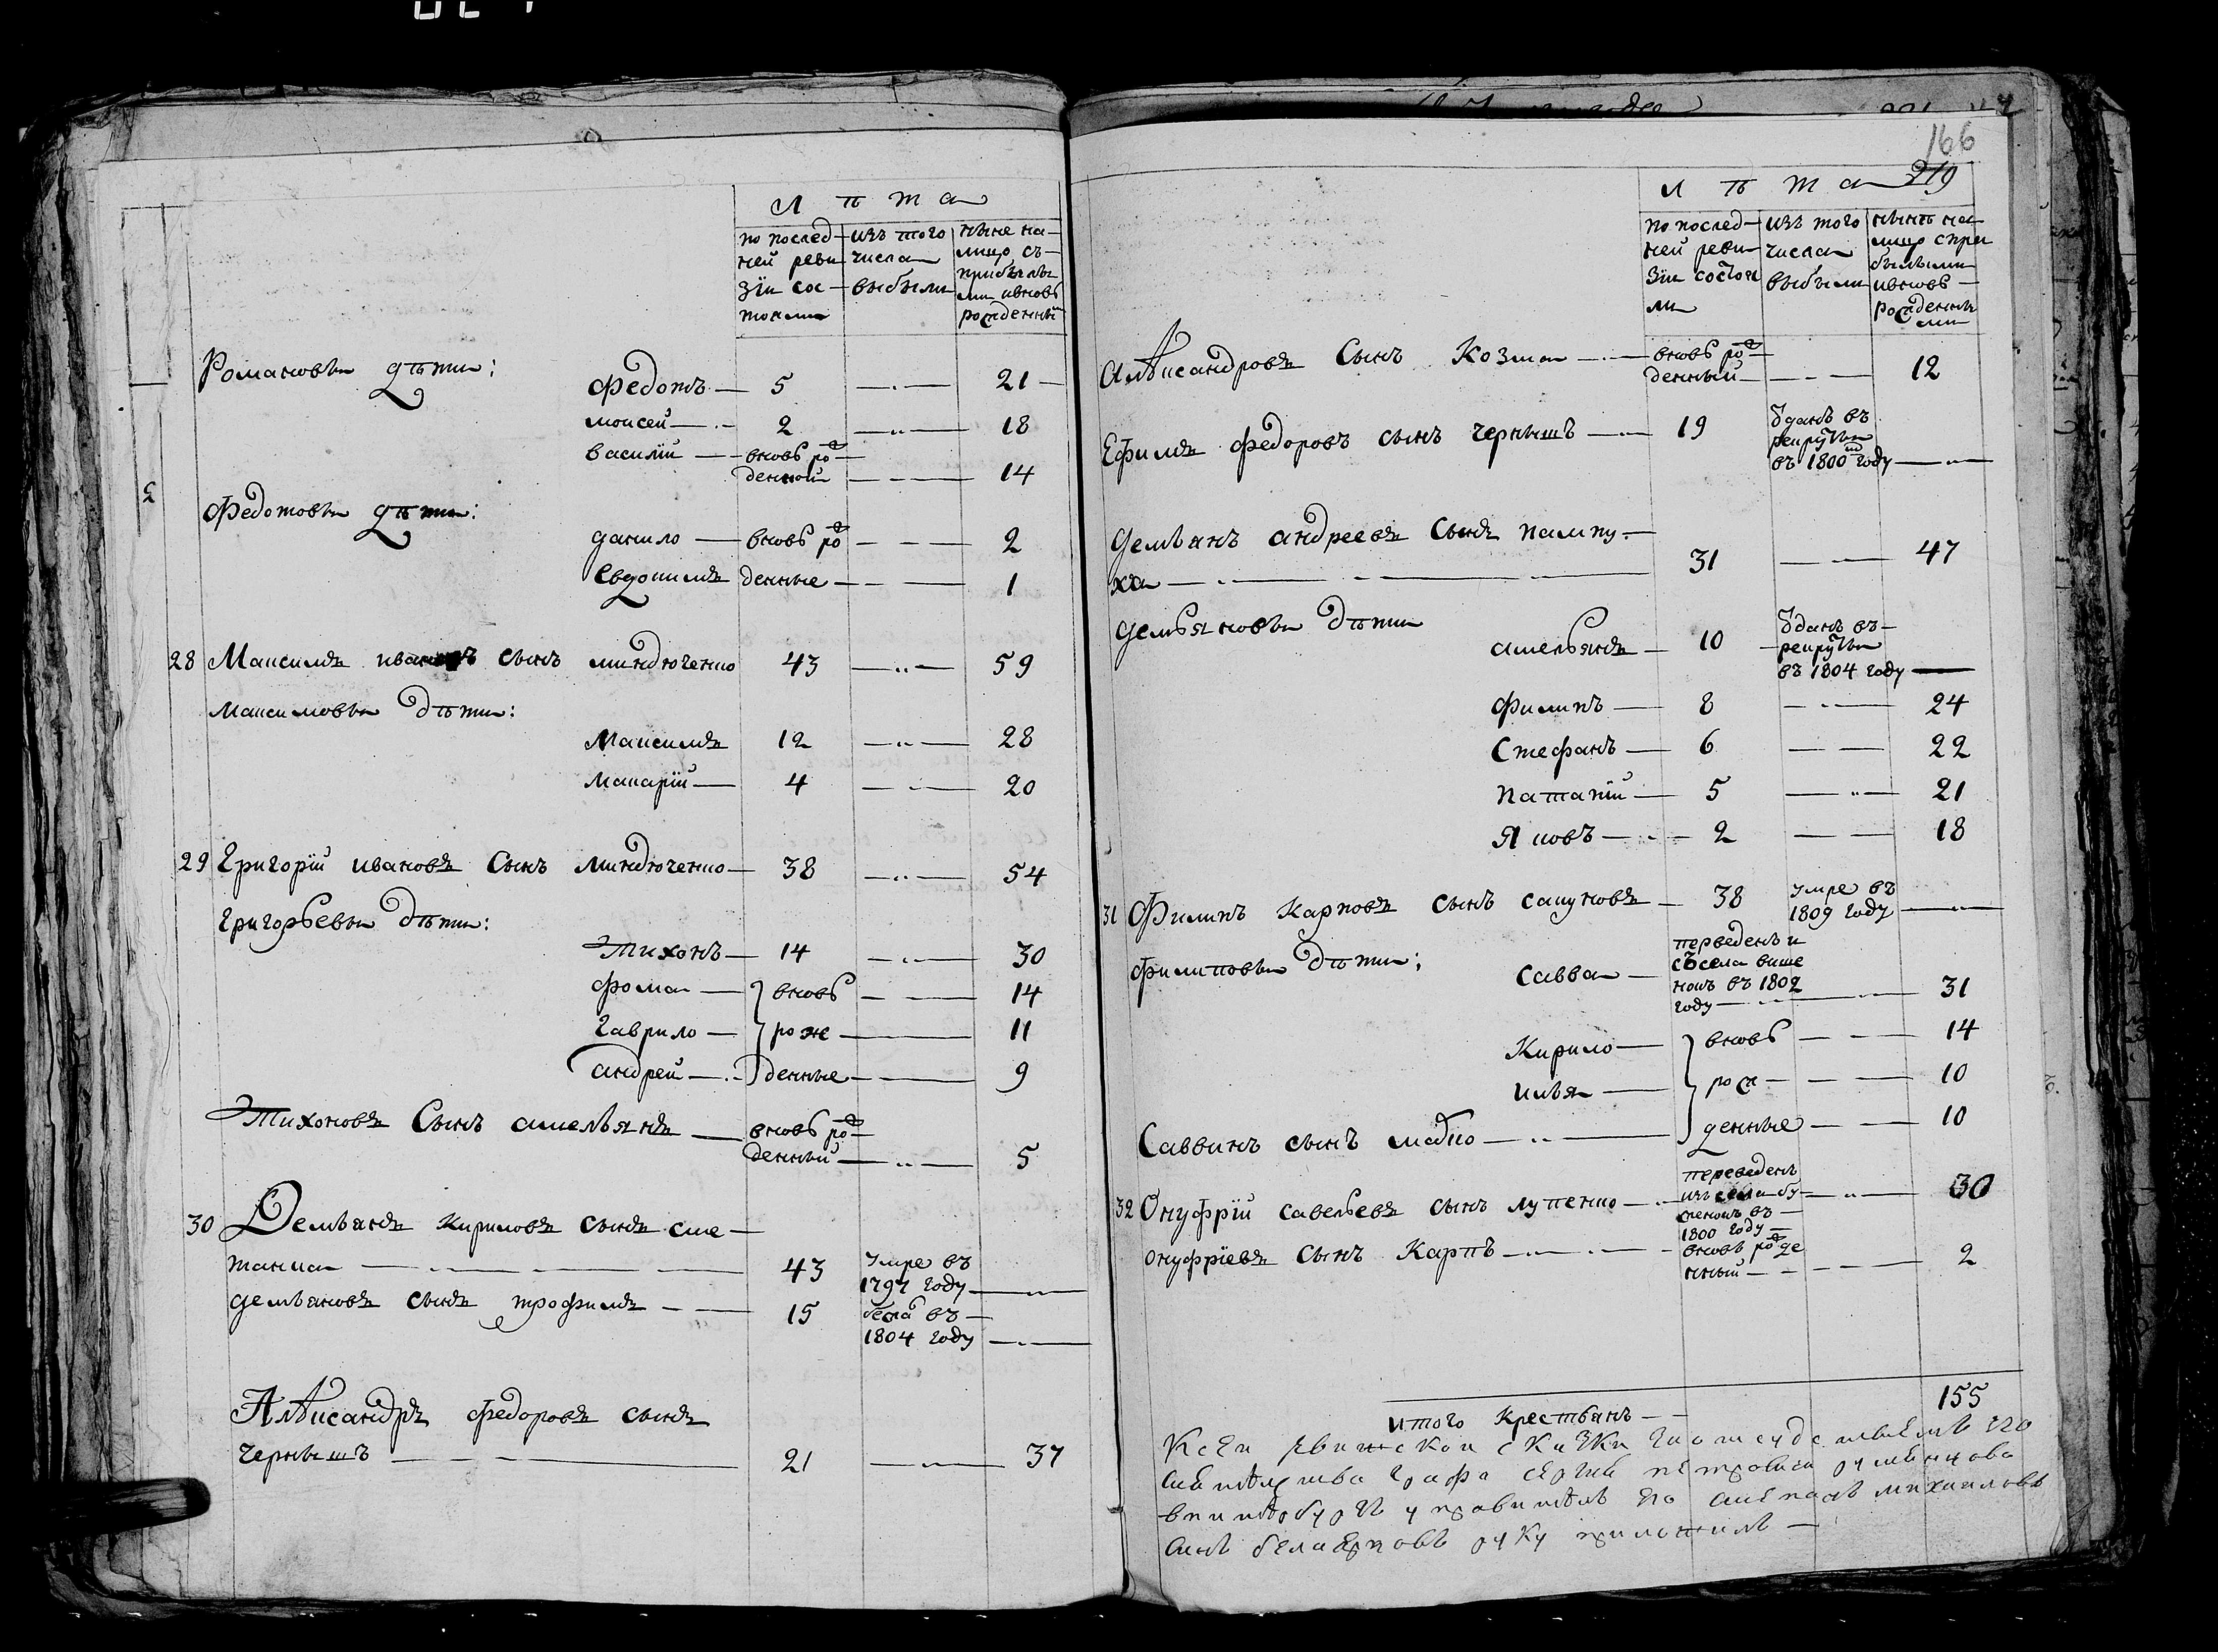 Л ѣ т а
по послед-
ней реви
зіи сос-
тояли
изъ того
числа
выбыли
ныне на-
лицо съ-
прибылы
ми ивновь
рожденный
Романовы дѣти:
Федотъ 5 21
Моисей 2 18
василій вновь рож
денной 14
Федотовы дѣти:
данило вновь рож 2
Евдокимъ денные 1
28 Максимъ ивановъ сынъ миндюченко 43 59
Максимовы дѣти:
Максимъ 12 28
Макарій 4 20
29 Григорій ивановъ сынъ миндюченко 38 54
Григорьевы дѣти:
Тихонъ 14 30
фома вновь 14
гаврило рож 11
андрей денные 9
Тихоновъ сынъ амельянъ вновь рож
денный 5
30 Демьянъ Кириловъ сынъ сме-
танка 43 умре въ
1797 году
демьяновъ сынъ трофимъ 15 бежа въ
1804 году
Алѣксандръ федоровъ сынъ
чернышъ 21 37
166
219
Л ѣ т а
по послед-
ней реви-
зіи состоя
ли
изъ того
числа
выбыли
нынѣ на-
лицо спри
былыми
ивновь
рожденны
ми
Алѣксандровъ сынъ Козма вновь рож
денный 12
Ефимъ федоровъ сынъ чернышъ 19 ѿданъ въ
рекруты
въ 1800м году
демьянъ андреевъ сынъ палпу-
ха 31 47
демьяновы дѣти
амельянъ 10 ѿданъ въ
рекруты
въ 1804 году
Филипъ 8 24
Стефанъ 6 22
Патапій 5 21
Яковъ 2 18
31 Филипъ Карповъ сынъ сапуновъ 38 умре въ
1809 году
филиповы дѣти:
Савва переведенъ и
съсела више
нокъ въ 1802
году 31
Кирило вновь 14
илья рож 10
Саввинъ сынъ марко денные 10
32 Онуфрій савельевъ сынъ лупенко переведенъ
изъ села бу-
женокъ въ
1800 году 30
онуфріевъ сынъ Карпъ вновь рожде
нный 2
итого крестьянъ 155
Ксеи ревижской скаски его
сиятелства графа сергия петровича румянцова
управитель степанъ михаиловъ
сынъ руку приложилъ